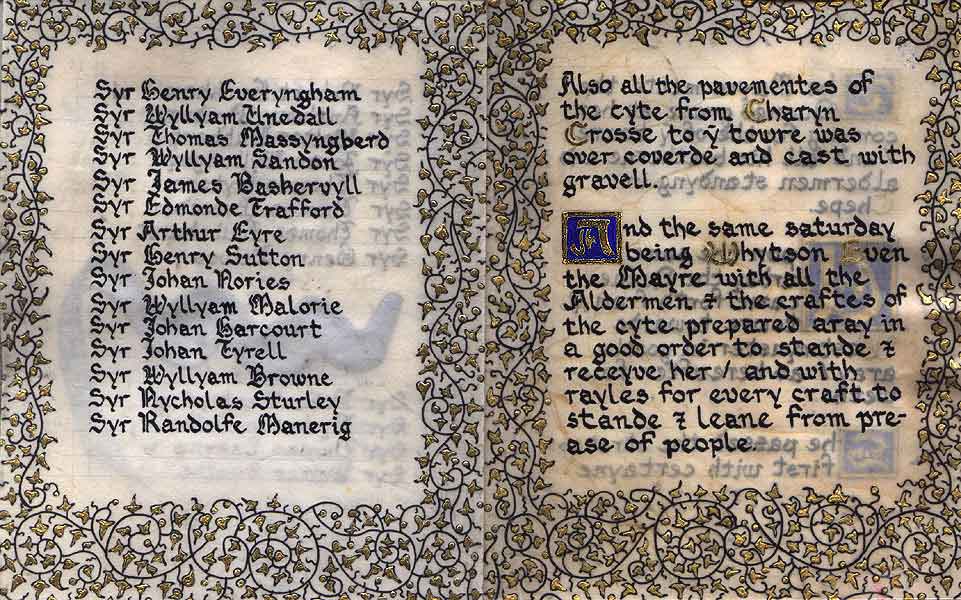 Syr Henry Everyngham
Syr Wyllyam Unedall
Syr Thomas Massyngberd
Syr Wyllyam Sandon
Syr James Baskervyll
Syr Edmonde Trafford
Syr Arthur Eyre
Syr Henry Sutton
Syr Johan Nories
Syr Wyllyam Malorie
Syr Johan Harcourt
Syr Johan Tyrell
Syr Wyllyam Browne
Syr Nycholas Sturley
Syr Randolfe Manerig
Also all the pavementes of
the cyte from Charyn
Crosse to ẏ towre was
over coverde and cast with
gravell.
And the same saturday
being Whytson Even
the Mayre with all the
Aldermen ⁊ the craftes of
the cyte prepared aray in
a good order to stande ⁊
receyve her / and with
rayles for every craft to
stande ⁊ leane from pre-
ase of people.